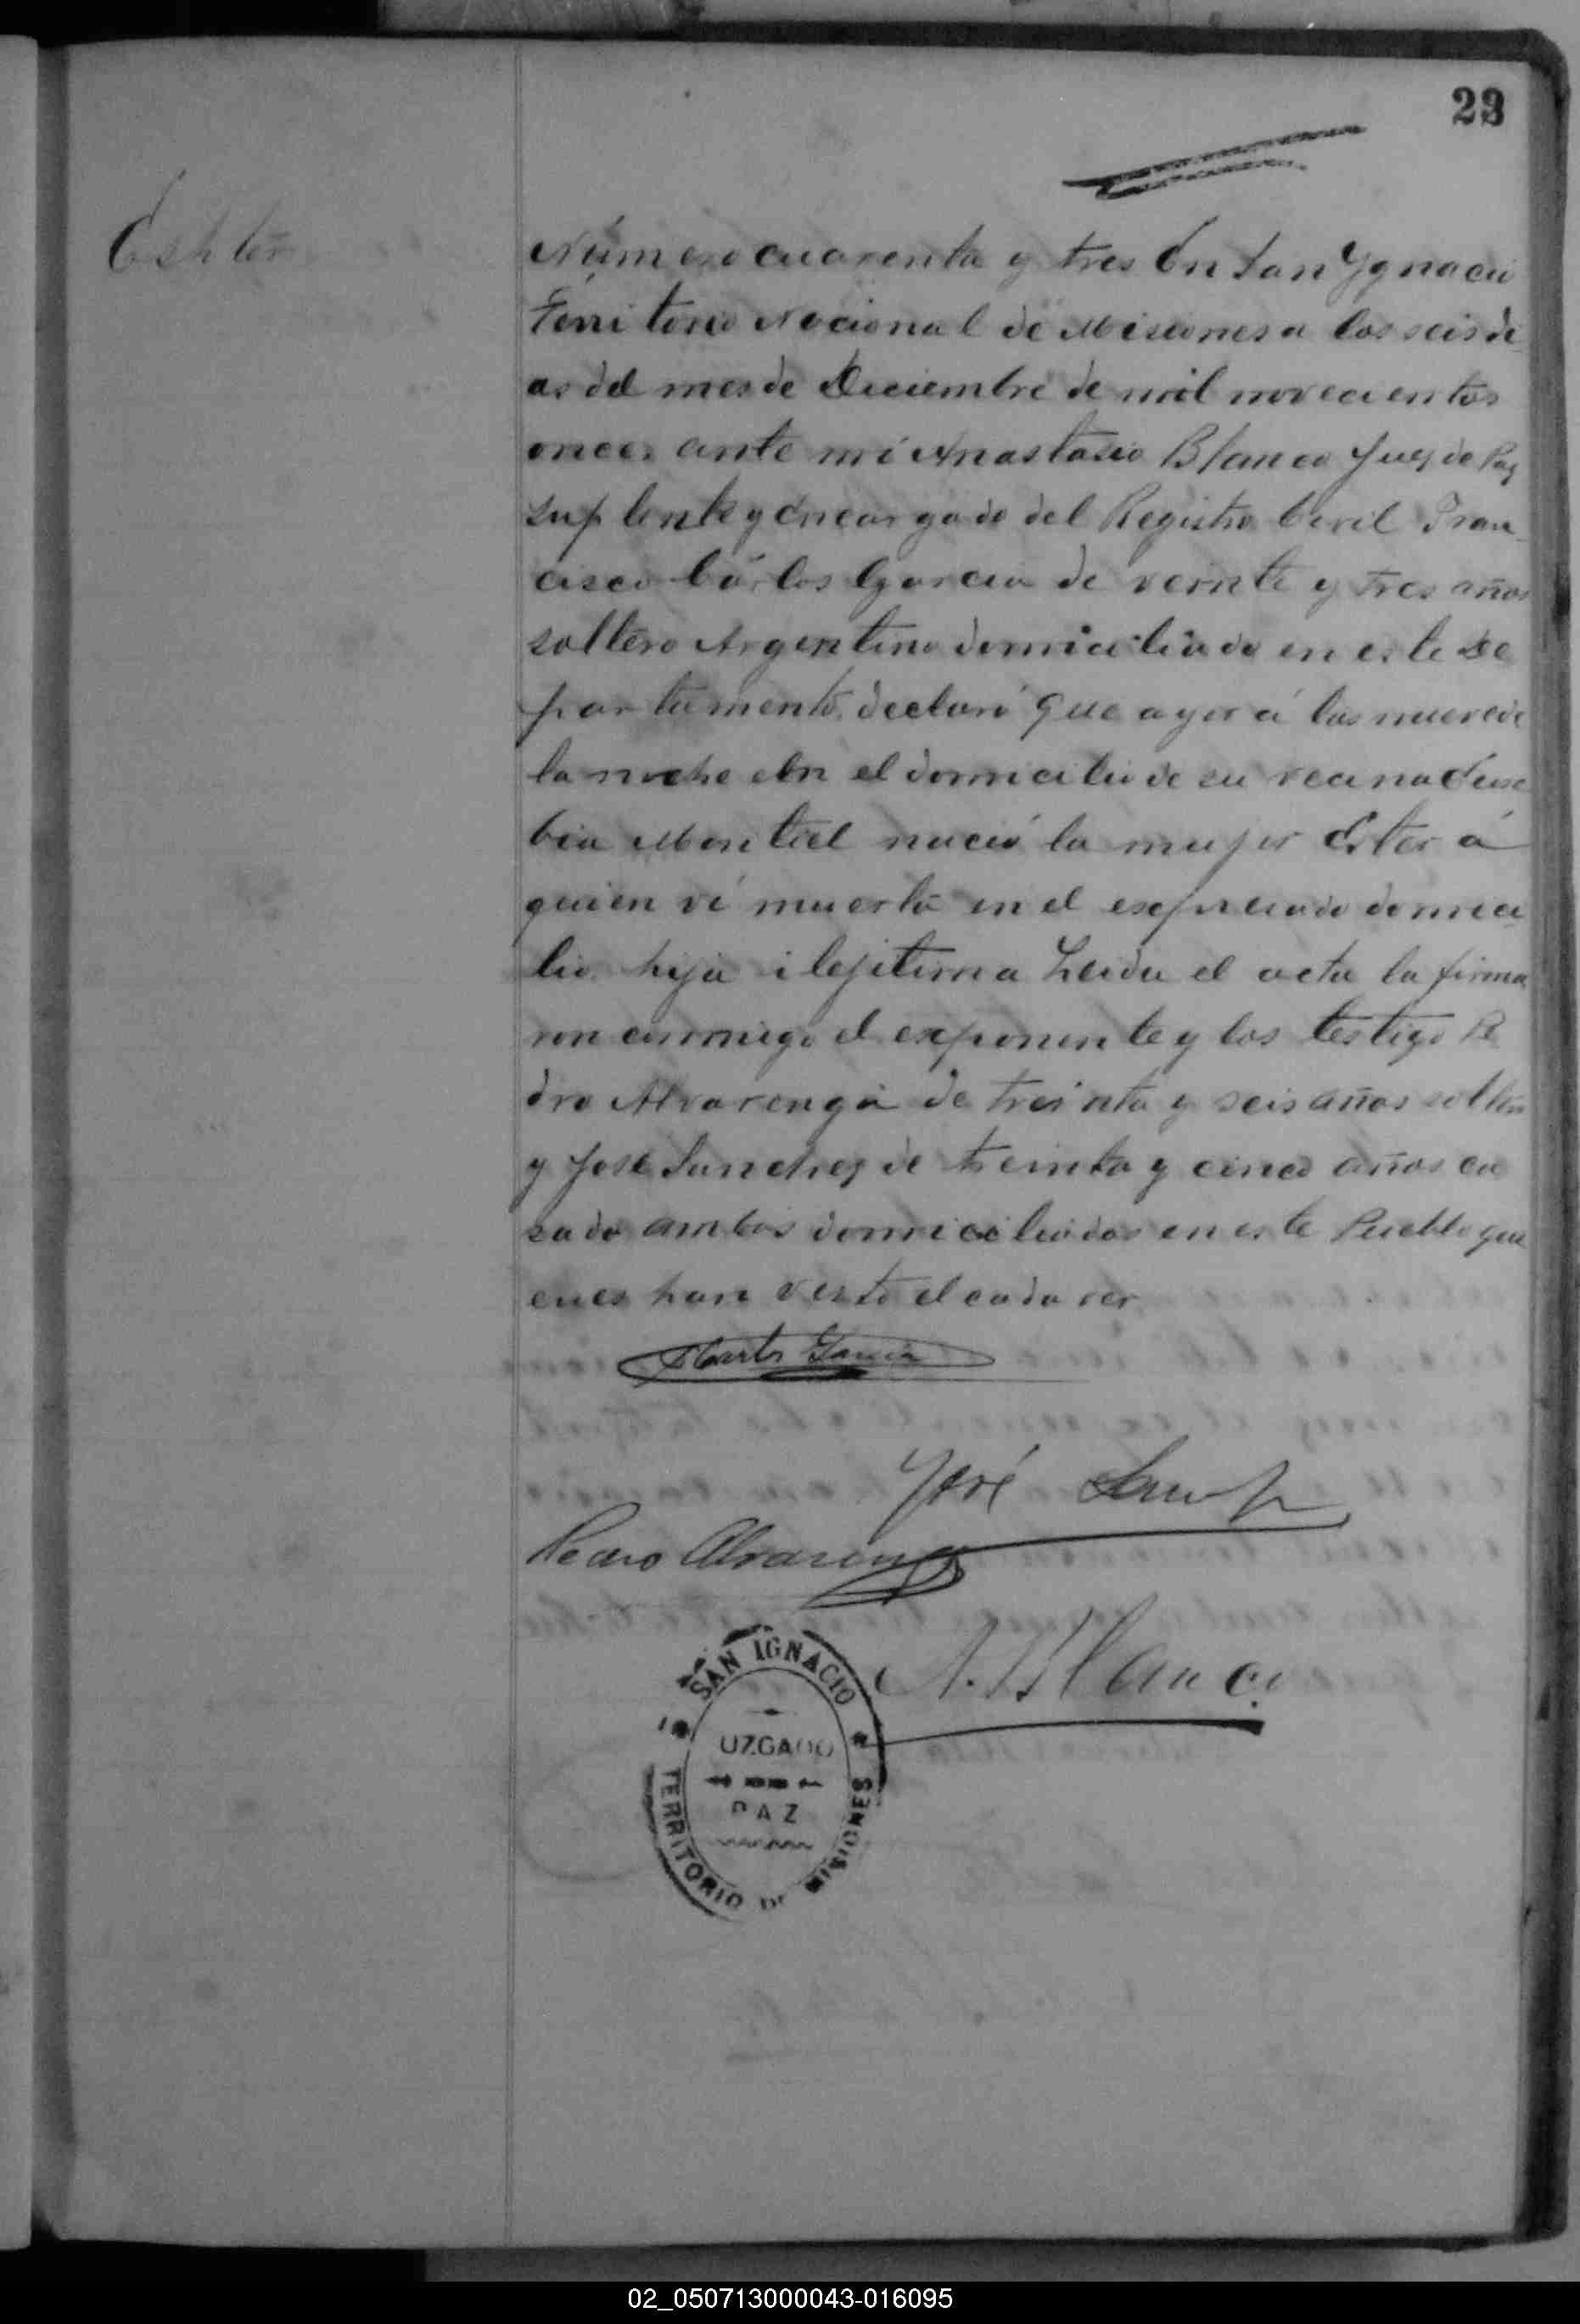 23
Ester
Número cuarenta y tres En San Ygnacio
Territorio Nacional de Misiones a los seis di
as del mes de Diciembre de mil novecientos
once, ante mi Anastasio Blanco Juez de Paz
suplente y encargado del Registro Civil Fran
cisco Cárlos Garcia de veinte y tres años
soltero Argentino domiciliado en este De
partamento, declaró que ayer á las nueve de
la noche en el domicilio de su vecina Euse
bia Montiel nació la mujer Ester á
quien ví muerta en el expresado domici
lio hija ilejitima Leida el acta la firma
ron conmigo el exponente y los testigo Pe
dro Alvarenga de treinta y seis años soltero
y José Sanchez de treinta y cinco años ca
sado ambos domiciliados en este Pueblo qui
enes han visto el cadaver
Carlos Garcia
José
Pedro Alvarenga
A. Blanco
SAN IGNACIO
UZGADO
PAZ
TERRITORIO DE MISIONES
02_050713000043-016095